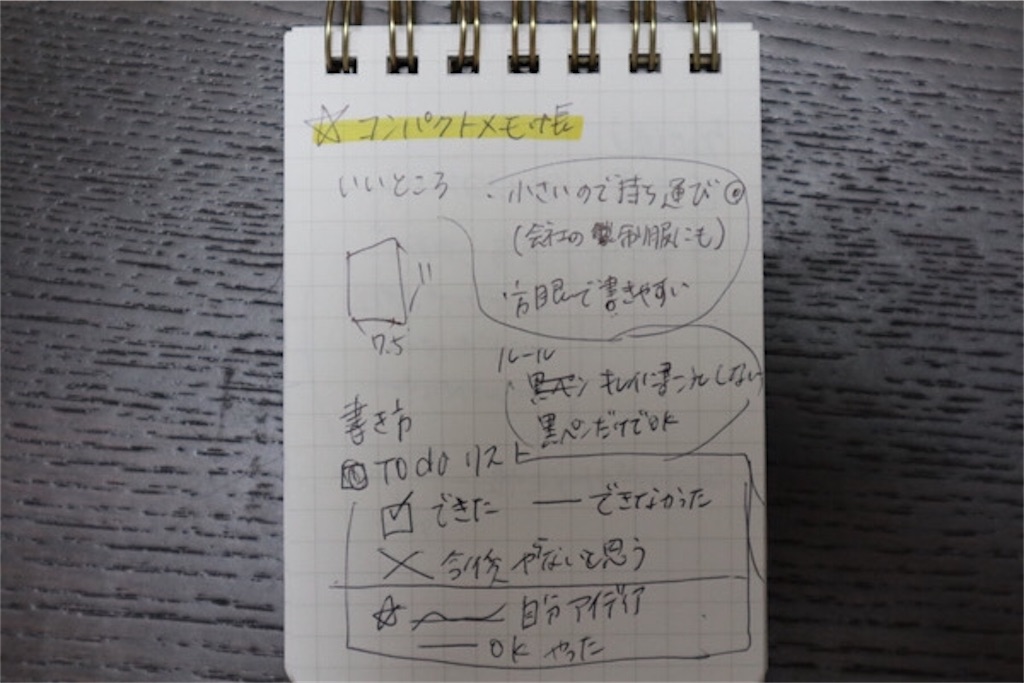 ☆ コンパクトメモ帳
いいところ
・小さいので持ち運び◎
(会社の制服にも)
・方眼で書きやすい
11
7.5
ルール
キレイに書こうとしない
黒ペンだけでOK
書き方
TOdo リスト
☑ できた ― できなかった
× 今後やらないと思う
☆ 自分アイディア
― OK やった